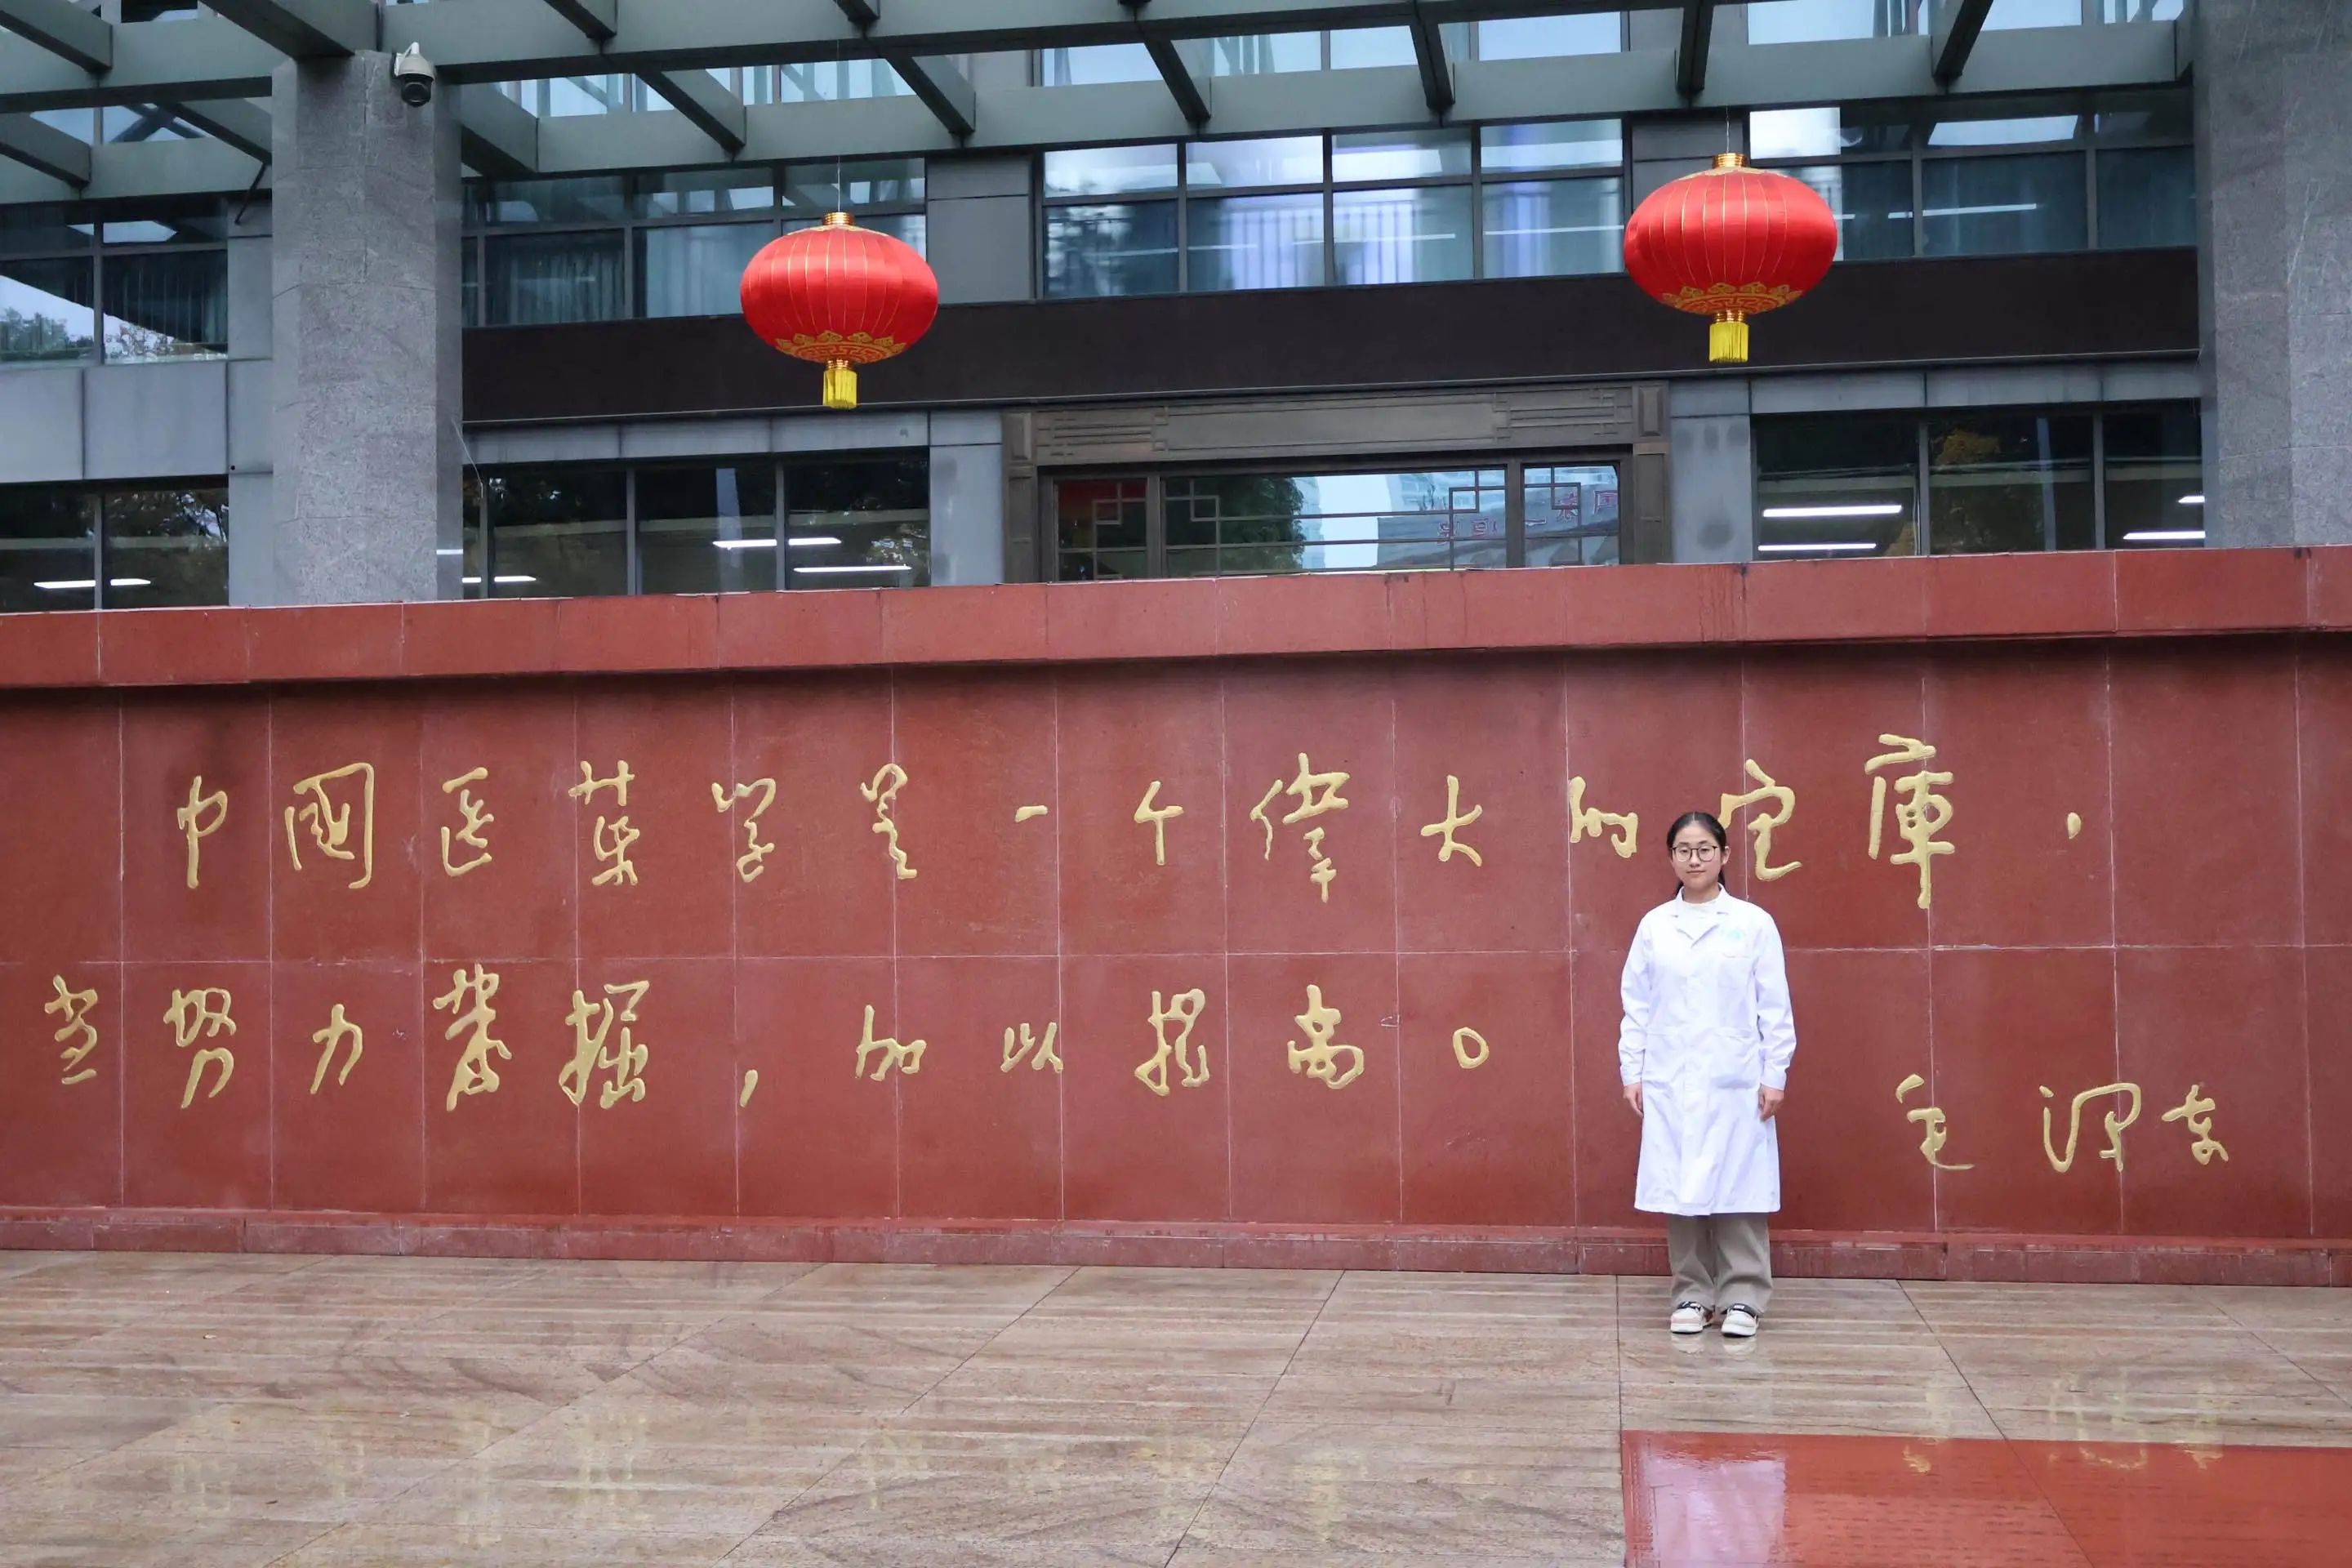 中國医药学是一个偉大的宝庫，
当努力發掘，加以提高。
毛泽东